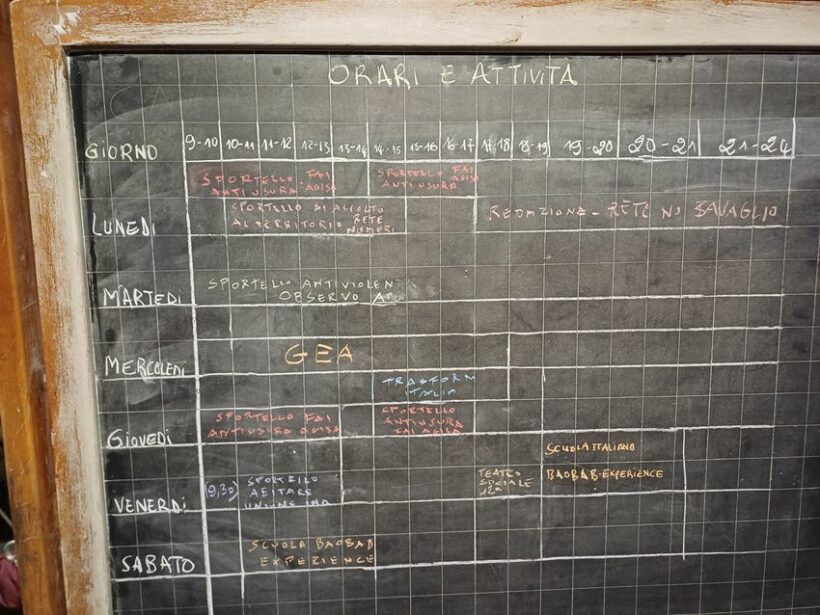 ORARI E ATTIVITÀ
GIORNO 9-10 10-11 11-12 12-13 13-14 14-15 15-16 16-17 17-18 18-19 19-20 20-21 21-24
SPORTELLO FAI
ANTIUSURA AGISA
SPORTELLO FAI
ANTIUSURA AGISA
LUNEDI
SPORTELLO DI ASCOLTO
AL TERRITORIO RETE
NUMERI
REDAZIONE - RETE NO BAVAGLIO
MARTEDI
SPORTELLO ANTIVIOLEN
OBSERVO
MERCOLEDI
GEA
TRASFORM
ITALIA
GIOVEDI
SPORTELLO FAI
ANTIUSURA AGISA
SPORTELLO
ANTIUSURA
FAI AGISA
VENERDI
(9,30) SPORTELLO
ABITARE
UNIONE
TEATRO
SOCIALE
SCUOLA ITALIANO
BAOBAB-EXPERIENCE
SABATO
SCUOLA BAOBAB
EXPERIENCE